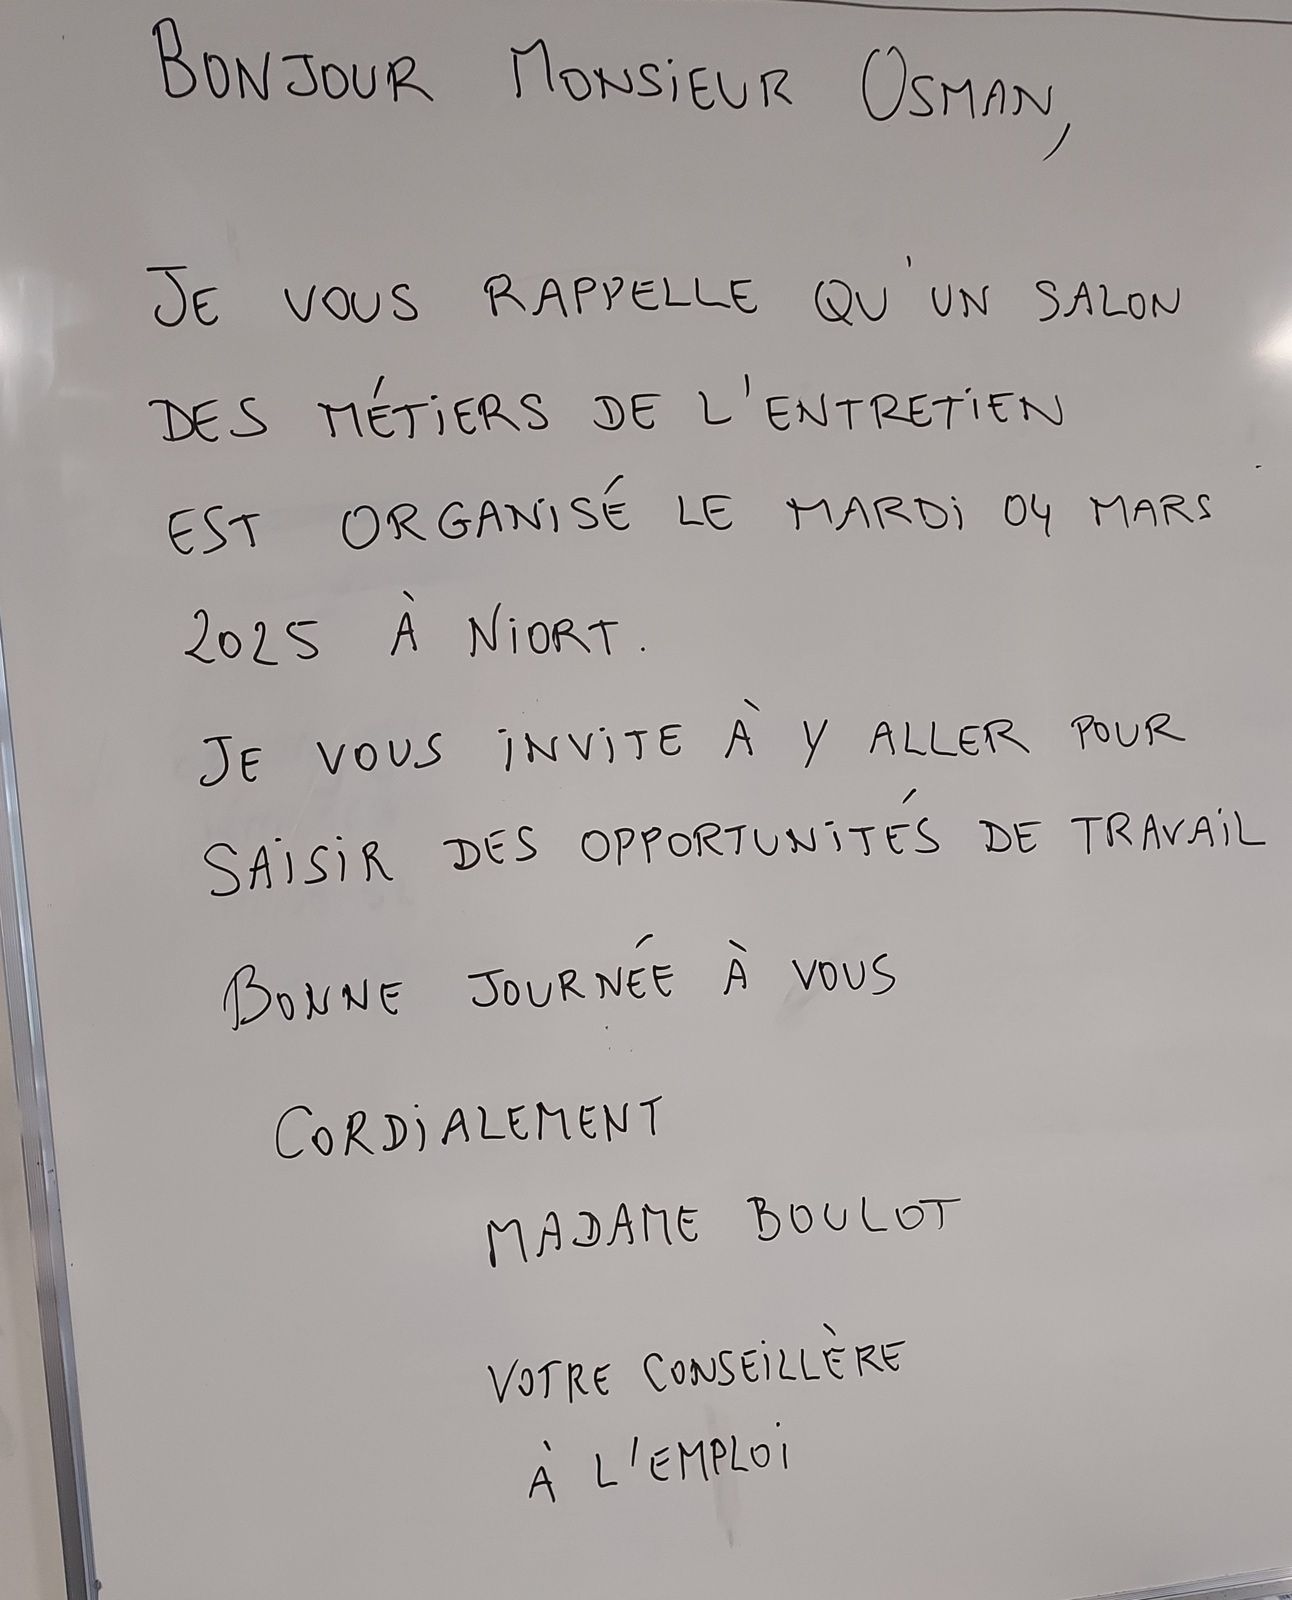 BONJOUR MONSIEUR OSMAN,
JE VOUS RAPPELLE QU'UN SALON
DES MÉTIERS DE L'ENTRETIEN
EST ORGANISÉ LE MARDI 04 MARS
2025 À NIORT.
JE VOUS INVITE À Y ALLER POUR
SAISIR DES OPPORTUNITÉS DE TRAVAIL
BONNE JOURNÉE À VOUS
CORDIALEMENT
MADAME BOULOT
VOTRE CONSEILLÈRE
À L'EMPLOI